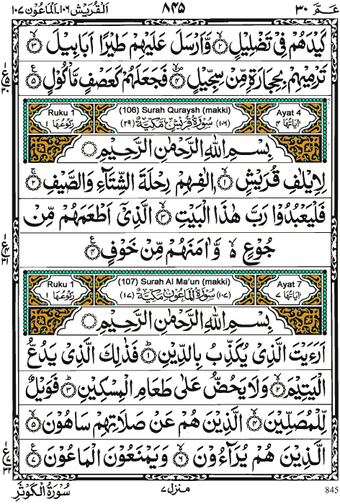 ١٠٧ اَلْقُرَيْش١٠٦، اَلْمَاعُوْن ٨٤٥ عَمَّ ٣٠
كَيْدَهُمْ فِيْ تَضْلِيْلٍ ۝٢ وَّاَرْسَلَ عَلَيْهِمْ طَيْرًا اَبَابِيْلَ ۝٣
تَرْمِيْهِمْ بِحِجَارَةٍ مِّنْ سِجِّيْلٍ ۝٤ فَجَعَلَهُمْ كَعَصْفٍ مَّاْكُوْلٍ ۝٥
Ruku 1 (106) Surah Quraysh (makki) Ayat 4
رُكُوْعُهَا ١ (٢٩) سُوْرَةُ قُرَيْشٍ مَكِّيَّةٌ (١٠٦) اٰيَاتُهَا ٤
بِسْمِ اللّٰهِ الرَّحْمٰنِ الرَّحِيْمِ
لِاِيْلٰفِ قُرَيْشٍ ۝١ اٖلٰفِهِمْ رِحْلَةَ الشِّتَآءِ وَالصَّيْفِ ۝٢
فَلْيَعْبُدُوْا رَبَّ هٰذَا الْبَيْتِ ۝٣ الَّذِيْٓ اَطْعَمَهُمْ مِّنْ
جُوْعٍ ۵ وَّاٰمَنَهُمْ مِّنْ خَوْفٍ ۝٤
Ruku 1 (107) Surah Al Ma'un (makki) Ayat 7
رُكُوْعُهَا ١ (١٧) سُوْرَةُ الْمَاعُوْنِ مَكِّيَّةٌ (١٠٧) اٰيَاتُهَا ٧
بِسْمِ اللّٰهِ الرَّحْمٰنِ الرَّحِيْمِ
اَرَءَيْتَ الَّذِيْ يُكَذِّبُ بِالدِّيْنِ ۝١ فَذٰلِكَ الَّذِيْ يَدُعُّ
الْيَتِيْمَ ۝٢ وَلَا يَحُضُّ عَلٰى طَعَامِ الْمِسْكِيْنِ ۝٣ فَوَيْلٌ
لِّلْمُصَلِّيْنَ ۝٤ الَّذِيْنَ هُمْ عَنْ صَلَاتِهِمْ سَاهُوْنَ ۝٥
الَّذِيْنَ هُمْ يُرَآءُوْنَ ۝٦ وَيَمْنَعُوْنَ الْمَاعُوْنَ ۝٧
سُوْرَةُ الْكَوْثَرِ منزل٧ 845